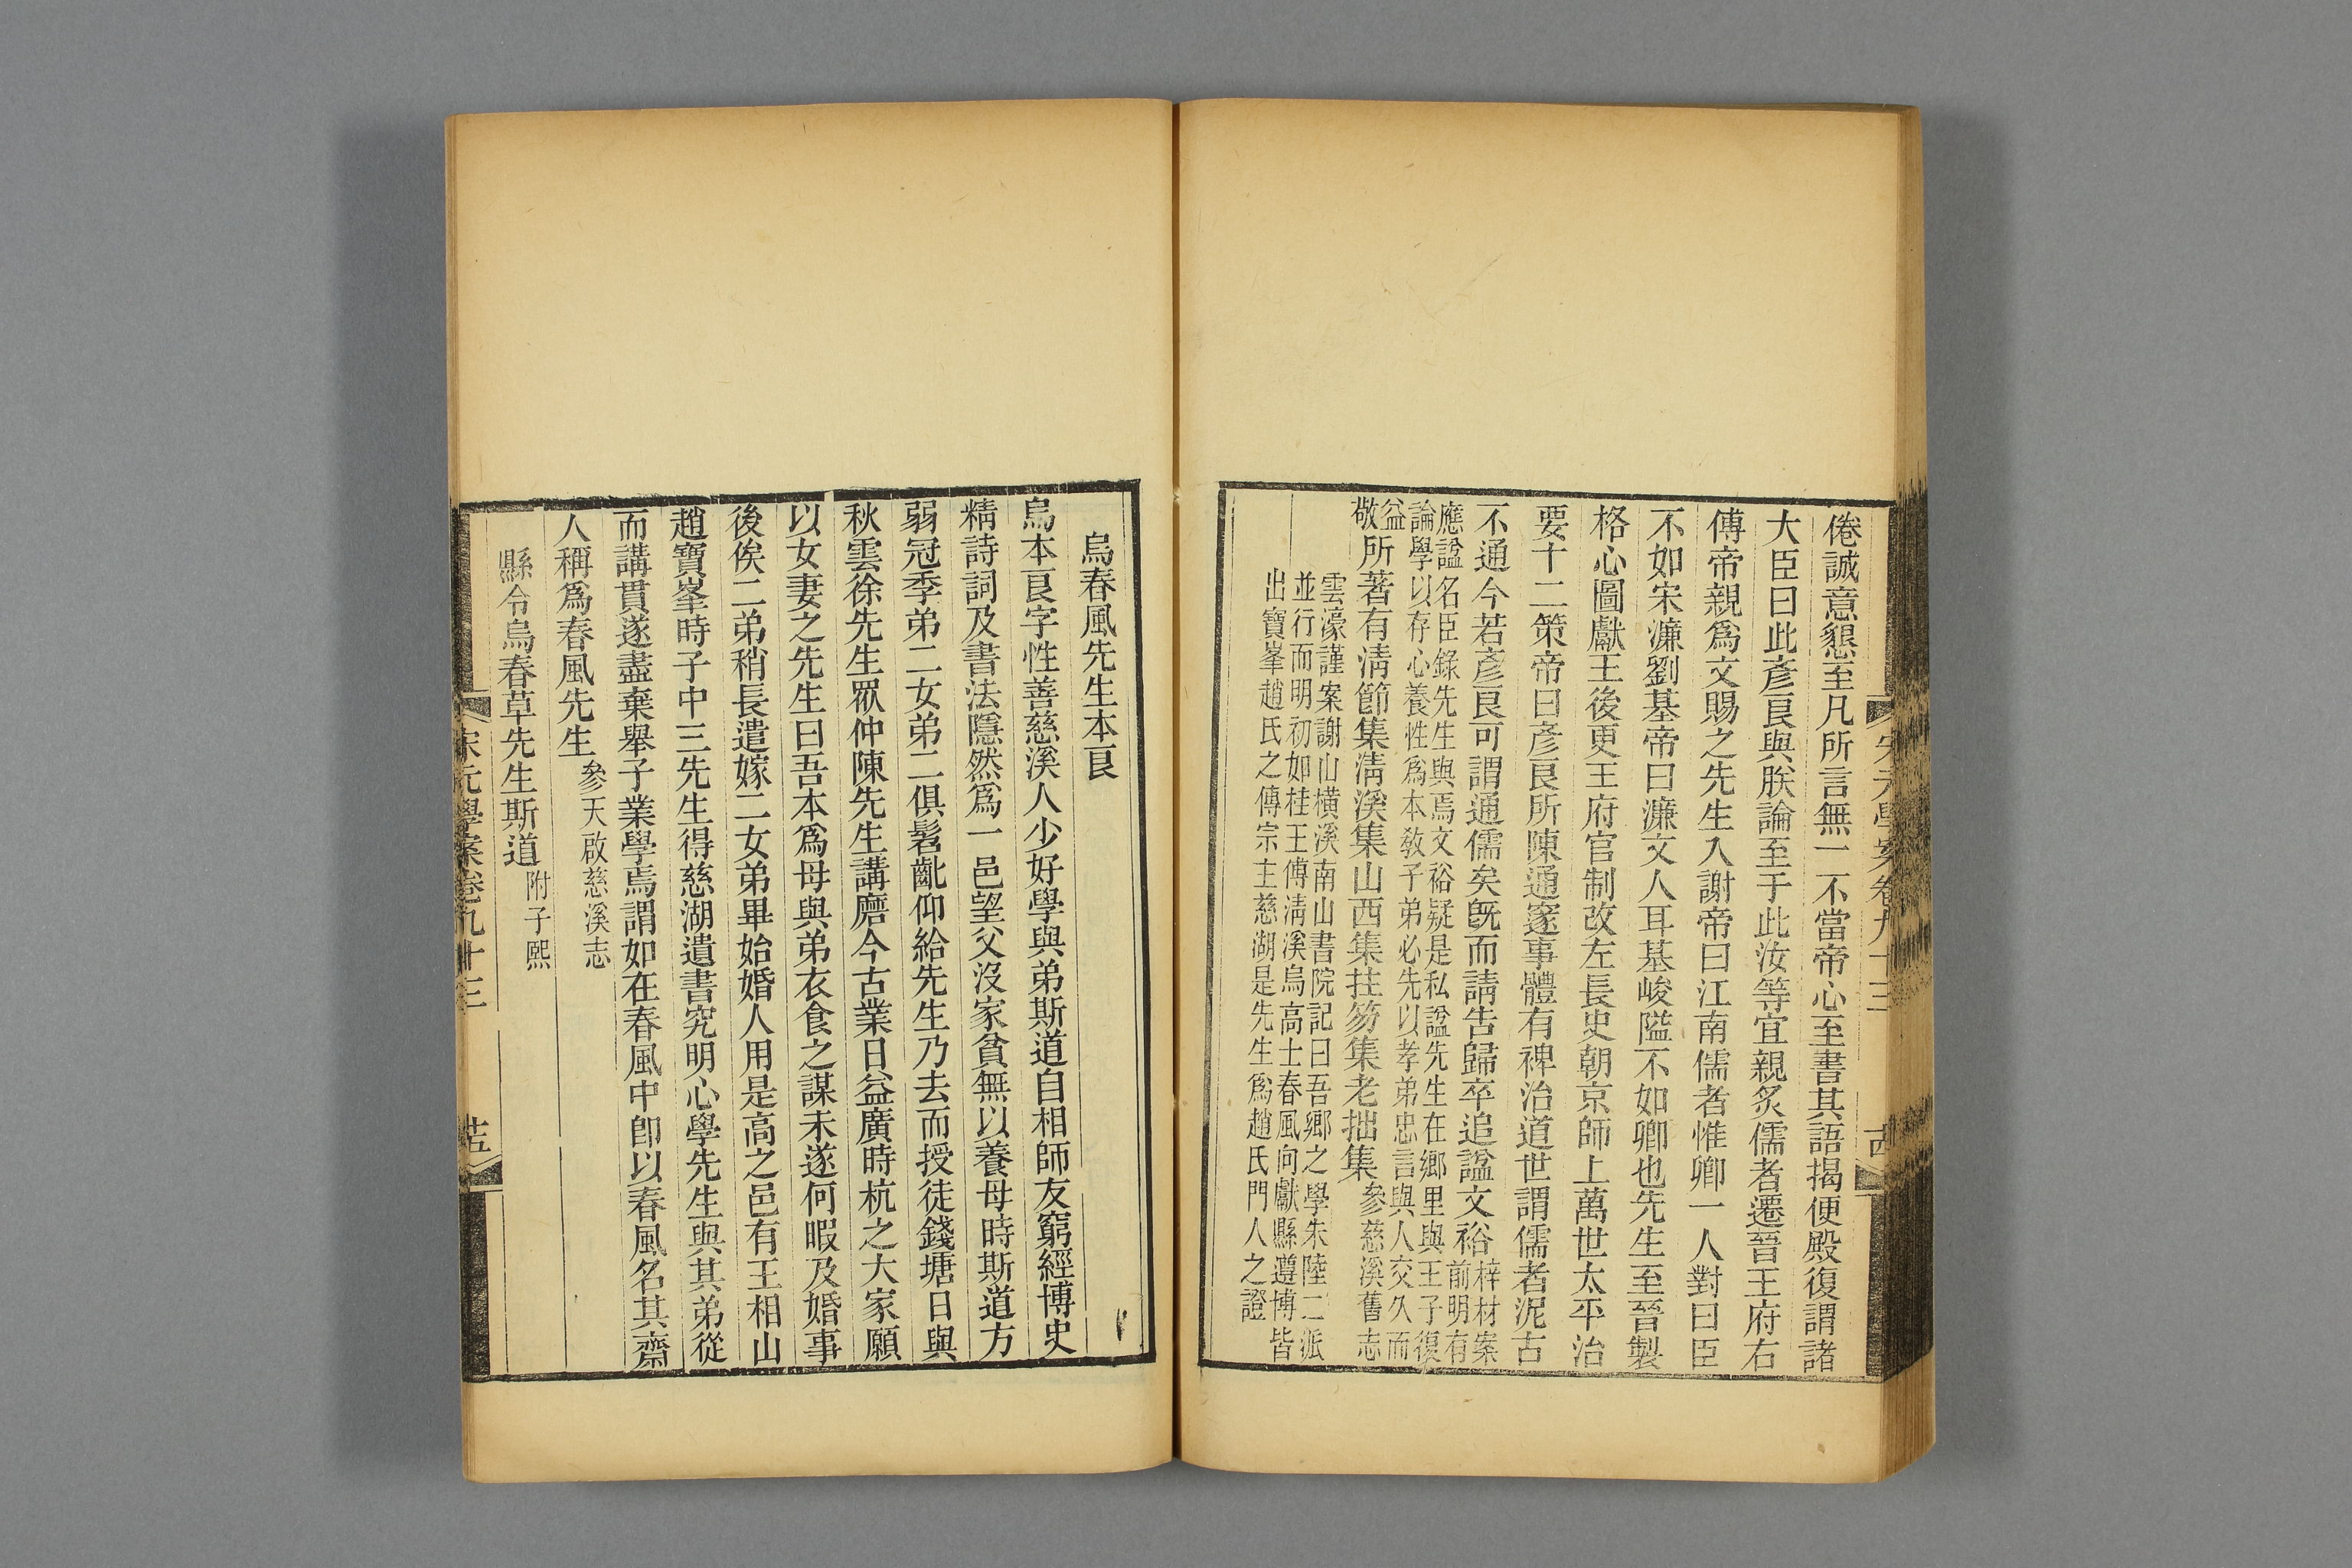 倦誠意懇至凡所言無一不當帝心至書其語揭便殿復謂諸
大臣曰此彥良與朕論至于此汝等宜親炙儒者遷晉王府右
傅帝親爲文賜之先生入謝帝曰江南儒者惟卿一人對曰臣
不如宋濂劉基帝曰濂文人耳基峻隘不如卿也先生至晉製
格心圖獻王後更王府官制改左長史朝京師上萬世太平治
要十二策帝曰彥良所陳通邃事體有裨治道世謂儒者泥古
不通今若彥良可謂通儒矣旣而請告歸卒追諡文裕
梓材案
前明有
應諡名臣錄先生與焉文裕疑是私諡先生在鄉里與王子復
論學以存心養性爲本敎子弟必先以孝弟忠言與人交久而
益
敬所著有淸節集淸溪集山西集拄笏集老拙集參慈溪舊志
雲濠謹案謝山橫溪南山書院記曰吾鄉之學朱陸二派
並行而明初如桂王傅淸溪烏高士春風向獻縣遵博皆
出寶峯趙氏之傳宗主慈湖是先生爲趙氏門人之證
宋元學案卷九十三
十四
烏春風先生本良
烏本良字性善慈溪人少好學與弟斯道自相師友窮經博史
精詩詞及書法隱然爲一邑望父沒家貧無以養母時斯道方
弱冠季弟二女弟二俱髫齔仰給先生乃去而授徒錢塘日與
秋雲徐先生眾仲陳先生講磨今古業日益廣時杭之大家願
以女妻之先生曰吾本爲母與弟衣食之謀未遂何暇及婚事
後俟二弟稍長遣嫁二女弟畢始婚人用是高之邑有王相山
趙寶峯時子中三先生得慈湖遺書究明心學先生與其弟從
而講貫遂盡棄舉子業學焉謂如在春風中卽以春風名其齋
人稱爲春風先生參天啟慈溪志
縣令烏春草先生斯道附子熙
宋元學案卷九十三
十五